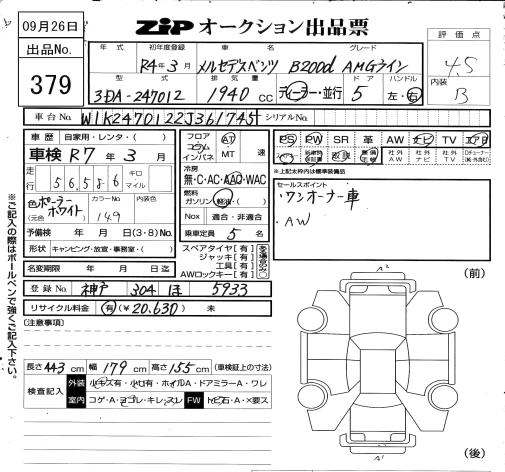 09月26日
出品No.
379
ZiP オークション出品票
評価点
4.5
内装
B
年式 初年度登録 車名 グレード
R4年3月 メルセデスベンツ B200d AMGライン
型式 排気量 ドア ハンドル
3DA-247012 1940 cc ディーラー・並行 5 左・右
車台No. W1K2470122J361745 シリアルNo.
車歴 自家用・レンタ・( )
車検 R7年3月
走行 56586 Km マイル
色 ポーラーホワイト (元色) カラーNo. 149 内装色
予備検 年 月 日(3・8)No.
形状 キャンピング・放宣・事務室・( )
名変期限 年 月 日迄
フロア コラム インパネ AT MT 速
冷房 無・C・AC・AAC・WAC
燃料 ガソリン・軽油・( )
Nox 適合・非適合
乗車定員 5 名
スペアタイヤ[有]
ジャッキ[有]
工具[有]
AWロックキー[有]
PS PW SR 革 AW ナビ TV エアB
社外AW 社外ナビ 社外TV
*上記太枠内は標準装備品
セールスポイント
・ワンオーナー車
・AW
登録No. 神戸 304 ほ 5933
リサイクル料金 有(¥20,630) 未
(注意事項)
長さ 443 cm 幅 179 cm 高さ 155 cm (車検証上の寸法)
検査記入 外装 小キズ有・小凹有・ホイルA・ドアミラーA・ワレ
室内 コゲ・A・ヨゴレ・キレ・スレ FW トビ石・A・X要ス
※ご記入の際はボールペンで強くご記入下さい。
(前)
A2
A1
(後)